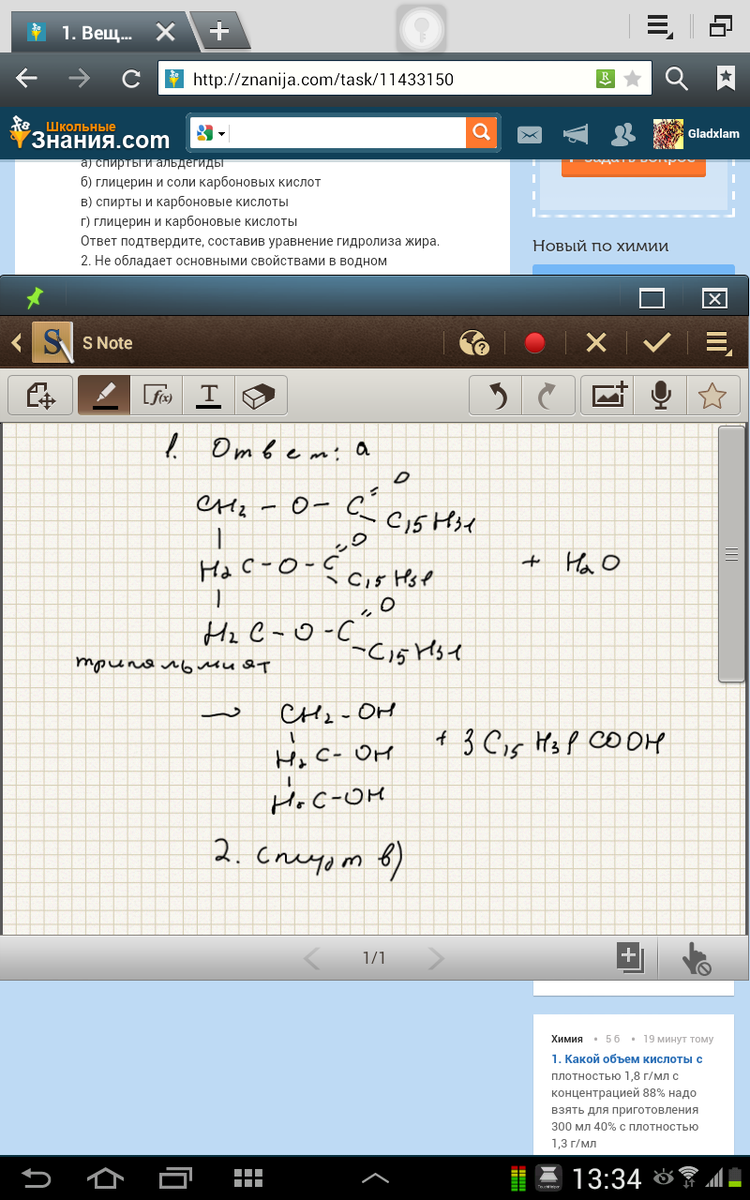 1. Вещ...
http://znanija.com/task/11433150
Школьные
Знания.com
Gladxlam
а) спирты и альдегиды
б) глицерин и соли карбоновых кислот
в) спирты и карбоновые кислоты
г) глицерин и карбоновые кислоты
Ответ подтвердите, составив уравнение гидролиза жира.
2. Не обладает основными свойствами в водном
Задать вопрос
Новый по химии
S Note
f(x)
T
1. Ответ: а
CH2 - O - C = O
- C15H31
H2C - O - C = O
- C15H31
+ H2O
H2C - O - C = O
- C15H31
CH2 - OH
H2C - OH
+ 3C15H31COOH
H2C - OH
2. в)
1/1
Химия • 5 б • 19 минут тому
1. Какой объем кислоты с
плотностью 1,8 г/мл с
концентрацией 88% надо
взять для приготовления
300 мл 40% с плотностью
1,3 г/мл
13:34